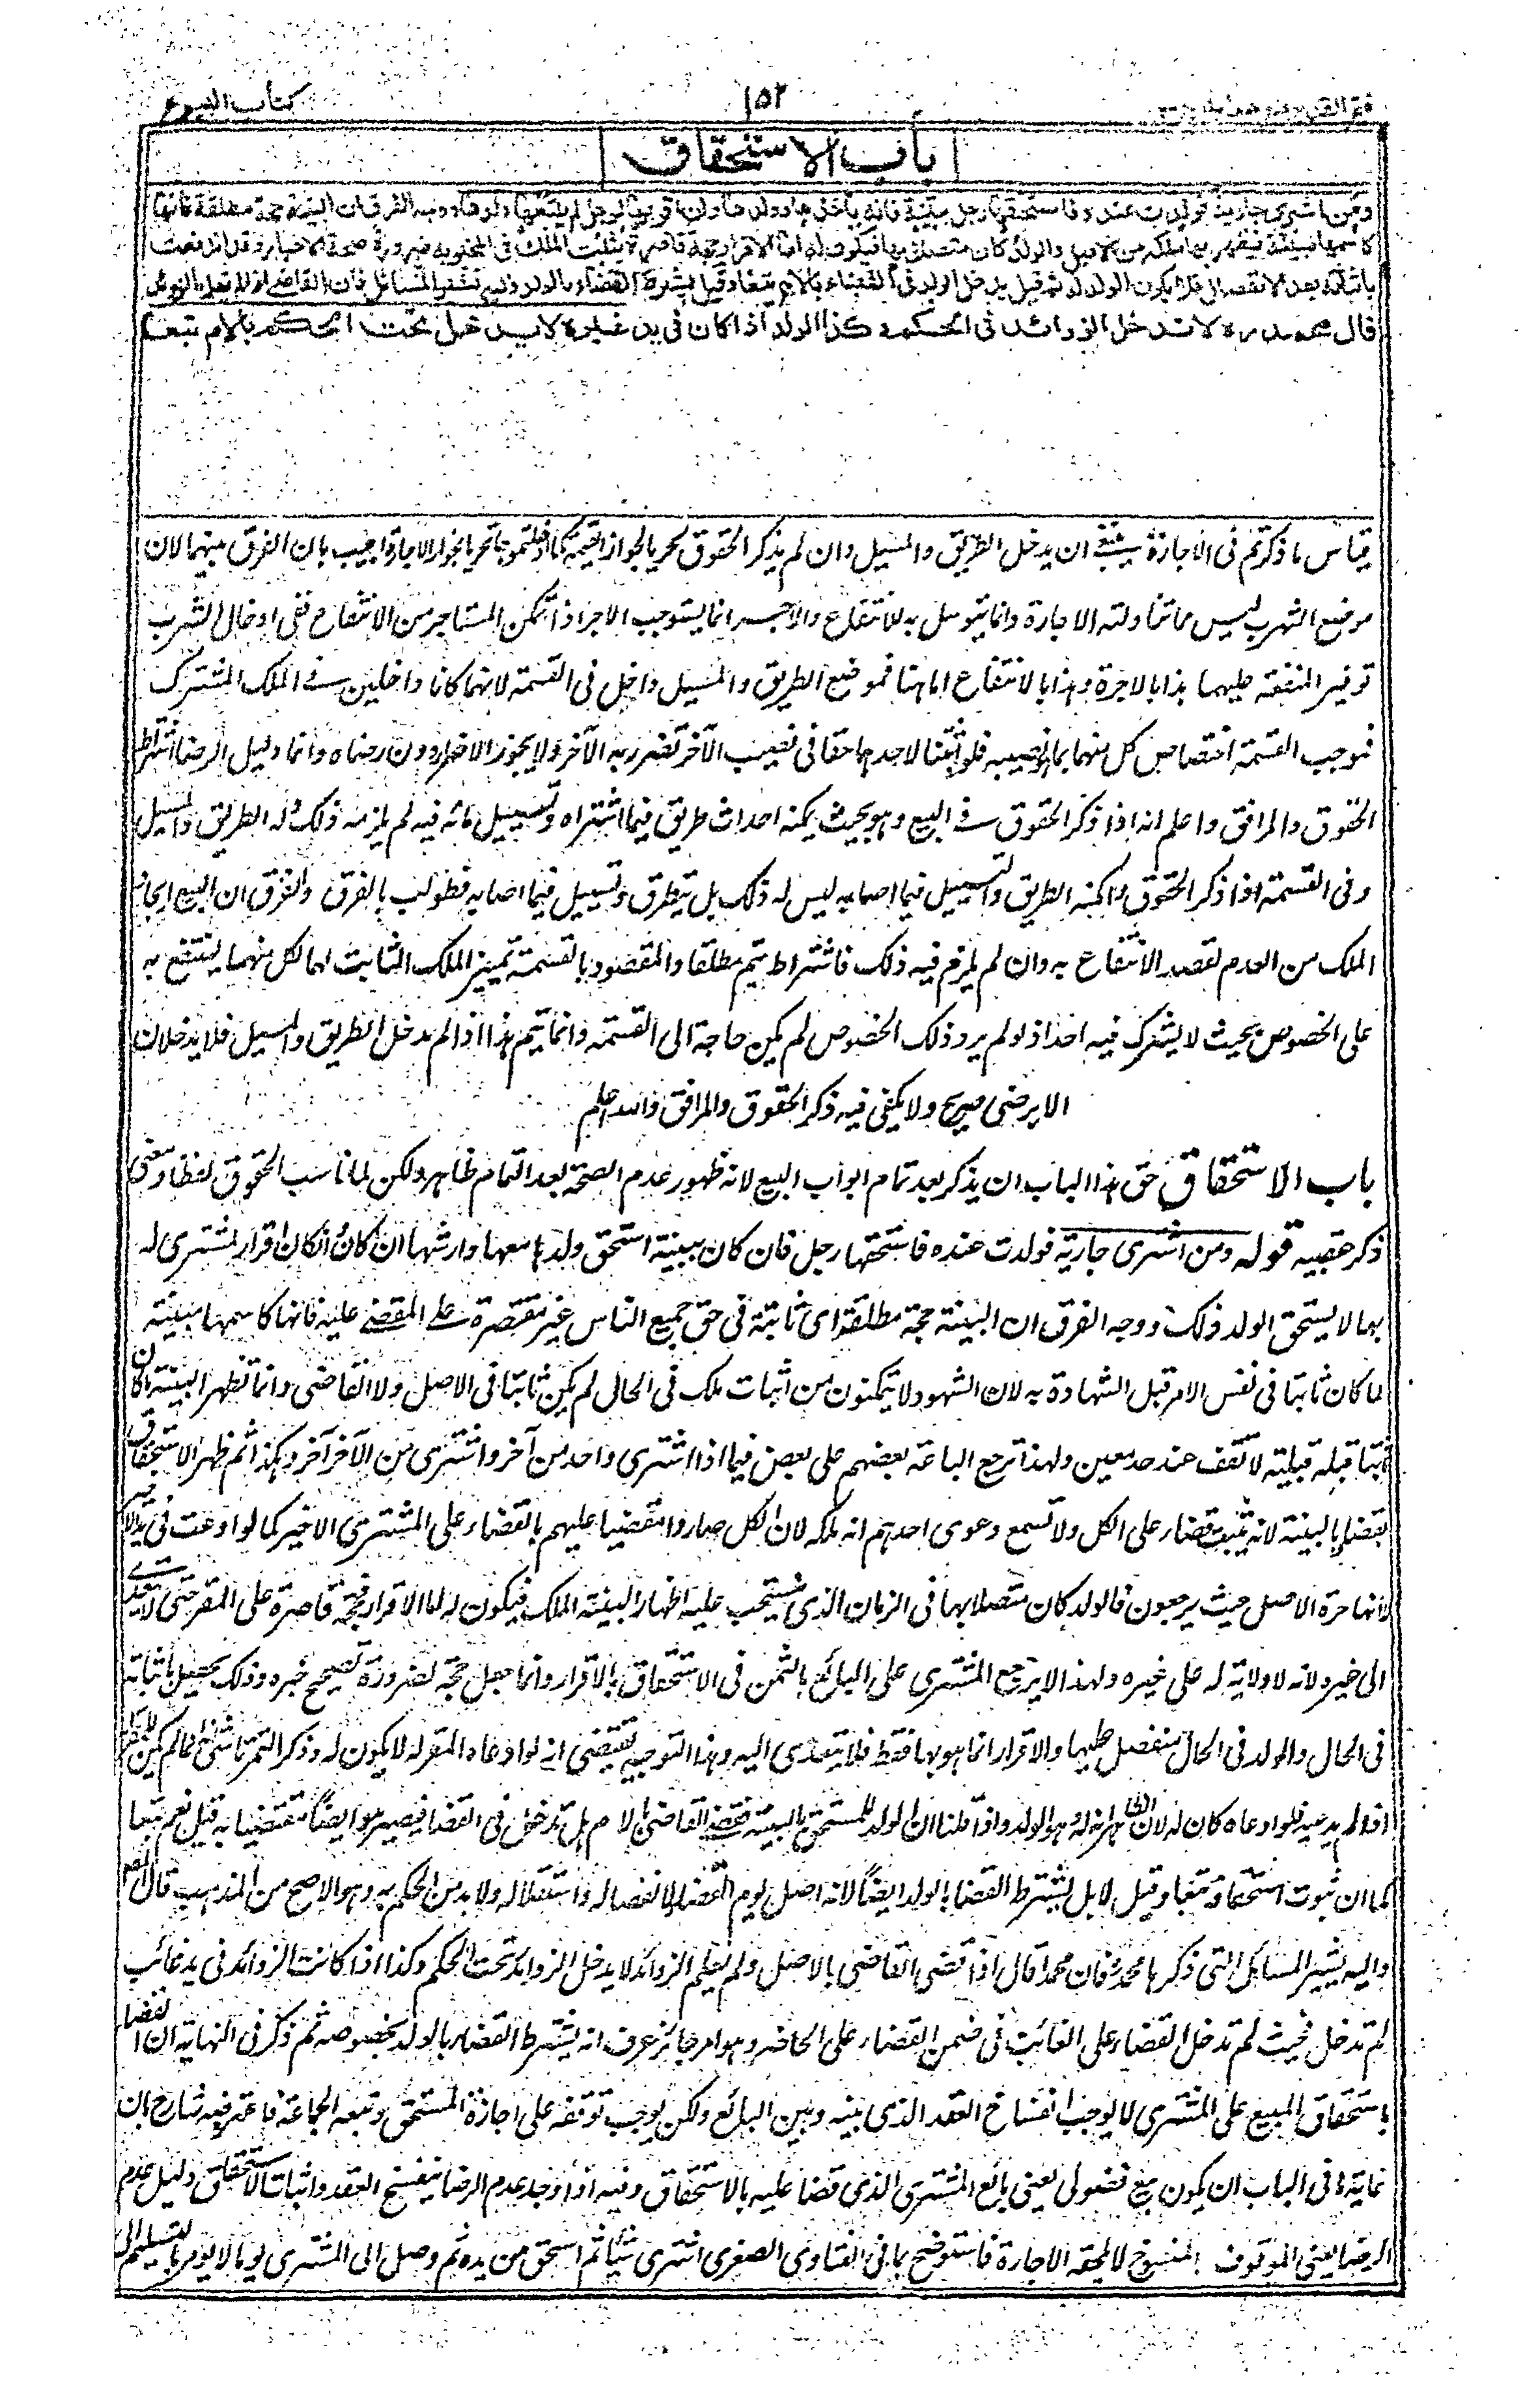 كتاب البيوع
١٥٢
فتح القدير مع هداية
باب الاستحقاق
ومن اشترى جارية فولدت عنده فاستحقها رجل ببينة فانه يأخذها وولدها وان اقر بها لرجل لم يتبعها ولدها ووجه الفرق ان البينة حجة مطلقة فانها
كاسمها مبينة فيظهر بها ملكه من الاصل والولد كان متصلا بها فيكون له اما الاقرار حجة قاصرة يثبت الملك في المخبر به ضرورة صحة الاخبار وقد اندفعت
باثباته بعد الانفصال فلا يكون الولد له ثم قيل يدخل الولد في القضاء بالام تبعا وقيل يشترط القضاء بالولد واليه تشير المسائل فان القاضي اذا لم يعلم بالزوائد
قال محمد ره لا تدخل الزوائد في الحكم وكذا الولد اذا كان في يد غيره لا يدخل تحت الحكم بالام تبعا
قياس ما ذكرتم فى الاجارة ينبغى ان يدخل الطريق والمسيل وان لم يذكر الحقوق تحريا لجواز القسمة كما ادخلتموها تحريا لجواز الاجارة اجيب بان الفرق بينهما لان
موضع الشرب ليس مما تناولته الاجارة وانما يتوسل به للانتفاع والآجر انما يستوجب الاجر اذا تمكن المستاجر من الانتفاع ففى ادخال الشرب
توفير المنفعة عليهما هذا بالاجرة وهذا بالانتفاع اما هنا فموضع الطريق والمسيل داخل فى القسمة لانهما كانا داخلين فى الملك المشترك
فموجب القسمة اختصاص كل منهما بما هو نصيبه فلو اثبتنا لاحدهما حقا فى نصيب الآخر تضرر به الآخر ولا يجوز الاضرار دون رضاه وانما دليل الرضا اشتراط
الحقوق والمرافق واعلم انه اذا ذكر الحقوق فى البيع وهو بحيث يمكنه احداث طريق فيما اشتراه وتسييل مائه فيه لم يلزمه ذلك وله الطريق والمسيل
وفى القسمة اذا ذكر الحقوق وامكنه الطريق والتسييل فيما اصابه ليس له ذلك بل يتطرق وتسييل فيما اصابه فطولب بالفرق والفرق ان البيع ايجاد
الملك من العدم لقصد الانتفاع به وان لم يلزم فيه ذلك فاشتراط يتم مطلقا والمقصود بالقسمة تمييز الملك الثابت لهما لكل منهما لينتفع به
على الخصوص بحيث لا يشترك فيه احد اذ لو لم يرد ذلك الخصوص لم يكن حاجة الى القسمة وانما يتم هذا اذا لم يدخل الطريق والمسيل فلا يدخلان
الا برضى صريح ولا يكفى فيه ذكر الحقوق والمرافق والله اعلم
باب الاستحقاق حق هذا الباب ان يذكر بعد تمام ابواب البيع لانه ظهور عدم الصحة بعد التمام ظاهر ولكن لما ناسب الحقوق لفظا ومعنى
ذكر عقيبه قوله ومن اشترى جارية فولدت عنده فاستحقها رجل فان كان ببينة استحق ولدها معها وارشها ان كان وان كان باقرار المشترى له
بها لا يستحق الولد ذلك ووجه الفرق ان البينة حجة مطلقة اى ثابتة فى حق جميع الناس غير مقتصرة على المقضى عليه فانها كاسمها مبينة
لما كان ثابتا فى نفس الامر قبل الشهادة به لان الشهود لا يتمكنون من اثبات ملك فى الحال لم يكن ثابتا فى الاصل ولا القاضى وانما تظهر البينة ما كان
ثابتا قبله قبلية لا تقف عند حد معين ولهذا ترجع الباعة بعضهم على بعض فيما اذا اشترى واحد من آخر واشترى من الآخر آخر وهكذا ثم ظهر الاستحقاق
بقضاء بالبينة لانه يثبت قضاء على الكل ولا تسمع دعوى احدهم انه ملكه لان الكل صاروا مقضيا عليهم بالقضاء على المشترى الاخير كما لو ادعت فى يد الاخير
لانها حرة الاصل حيث يرجعون فالولد كان متصلا بها فى الزمان الذى ينسحب عليه اظهار البينة الملك فيكون له اما الاقرار فحجة قاصرة على المقر حتى لا يتعدى
الى غيره لانه لا ولاية له على غيره ولهذا لا يرجع المشترى على البائع بالثمن فى الاستحقاق بالاقرار وانما جعل حجة لضرورة تصحيح خبره وذلك يحصل باثباته
فى الحال والولد فى الحال منفصل عنها والاقرار انما هو بها فقط فلا يتعدى اليه وهذا التوجيه يقتضى انه لو ادعاه المقر له لا يكون له وذكر التمرتاشى انما لم يكن للمقر له
اذا لم يدعيه فلو ادعاه كان له لان الظاهر انه له هو الولد واذا قلنا ان الولد للمستحق بالبينة فقضى القاضى بالام هل تدخل فى القضاء فيصير هو ايضا مقضيا به قيل نعم تبعا
كما ان ثبوت استحقاقه تبعا وقيل لا بل يشترط القضاء بالولد ايضا لانه اصل يوم القضاء لانفصاله واستقلاله ولا بد من الحكم به وهو الاصح من المذهب قال المصنف
واليه يشير المسائل التى ذكرها محمد فان محمدا قال اذا قضى القاضى بالاصل ولم يعلم الزوائد لا يدخل الزوائد تحت الحكم وكذا اذا كانت الزوائد فى يد غائب
لم تدخل فحيث لم تدخل القضاء على الغائب فى ضمن القضاء على الحاضر وهو امر جائز عرف انه يشترط القضاء بالولد بخصوصه ثم ذكر فى النهاية ان القضاء
باستحقاق المبيع على المشترى لا يوجب انفساخ العقد الذى بينه وبين البائع ولكن يوجب توقفه على اجازة المستحق وتبعه الجماعة فاعترضه شارح بان
غاية ما فى الباب ان يكون بيع فضولى يعنى بائع المشترى الذى قضا عليه بالاستحقاق وفيه اذا وجد عدم الرضا ينفسخ العقد واثبات الاستحقاق دليل عدم
الرضا يعنى الموقوف المنسوخ لا تلحقه الاجازة فاستوضح بما فى الفتاوى الصغرى اشترى شيئا ثم استحق من يده ثم وصل الى المشترى يوما لا يؤمر بالتسليم الى